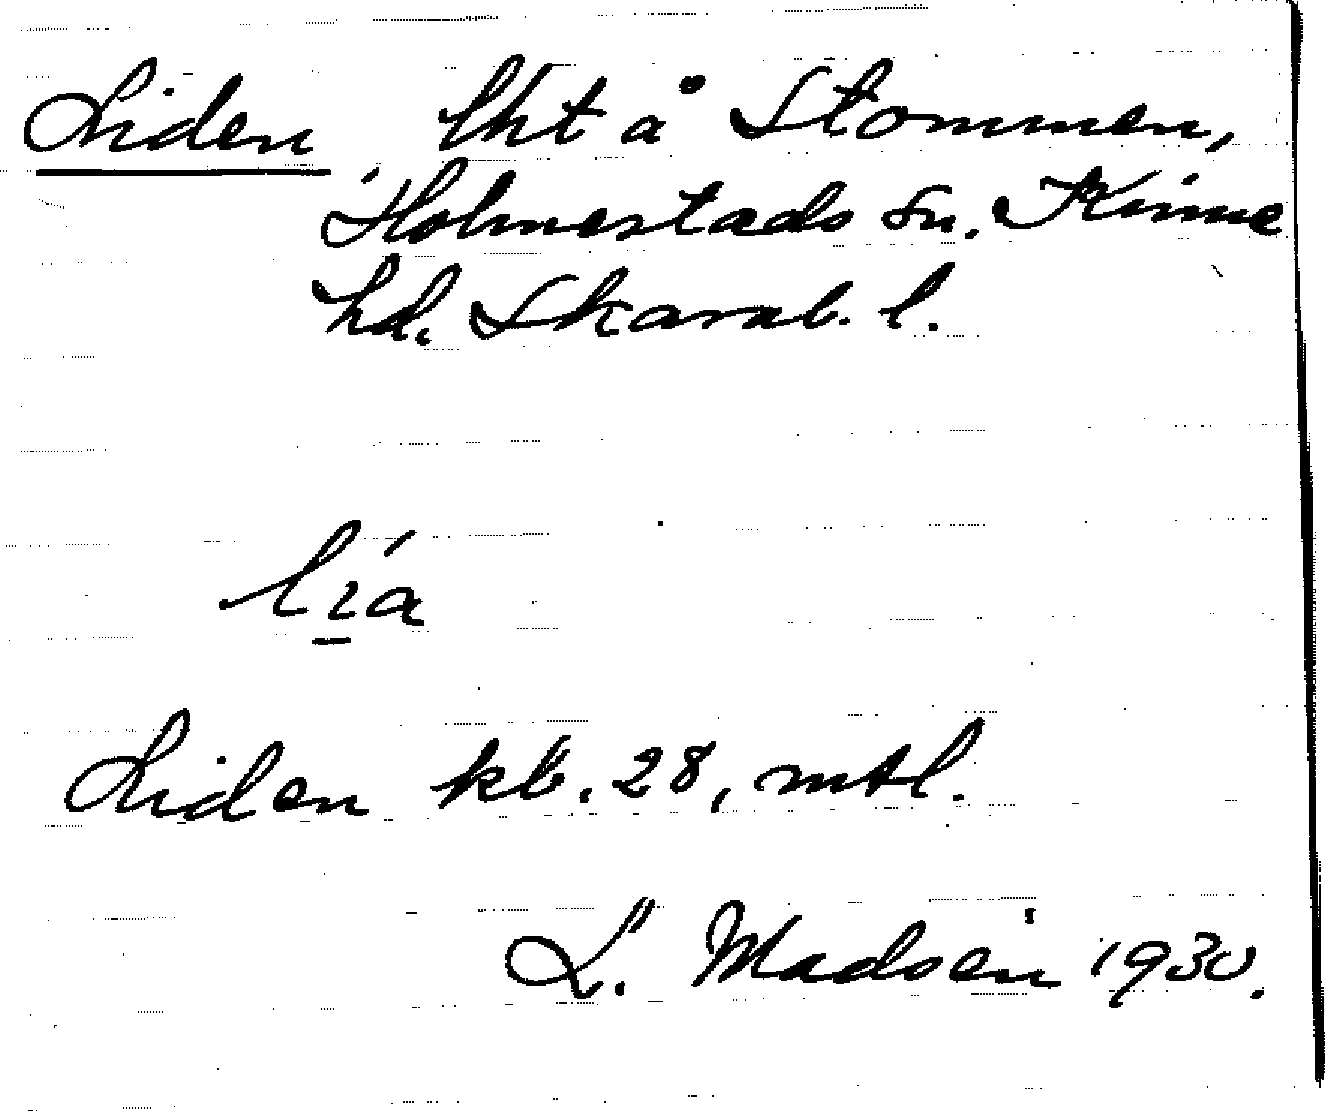 Liden lht å Stommen,
Holmestads sn. Kinne
hd. Skarab. l.
lía
Liden kb. 28, mtl.
L. Madsén 1930.